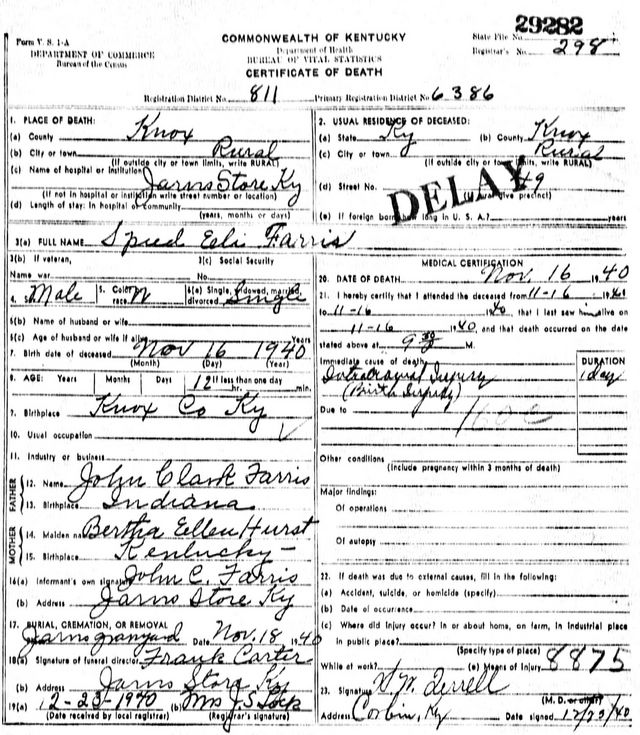 29282
Form V. S. 1-A
DEPARTMENT OF COMMERCE
Bureau of the Census
COMMONWEALTH OF KENTUCKY
Department of Health
BUREAU OF VITAL STATISTICS
CERTIFICATE OF DEATH
State File No.
Registrar's No. 298
Registration District No. 811 Primary Registration District No. 6386
1. PLACE OF DEATH:
(a) County Knox
(b) City or town Rural
(If outside city or town limits, write RURAL)
(c) Name of hospital or institution
Jarvis Store Ky
(If not in hospital or institution write street number or location)
(d) Length of stay: In hospital or community
(years, months or days)
2. USUAL RESIDENCE OF DECEASED:
(a) State Ky (b) County Knox
(c) City or town Rural
(If outside city or town limits, write RURAL)
(d) Street No. 49
(If rural give precinct)
(e) If foreign born, how long in U. S. A.? years
DELAY
3(a) FULL NAME Speed Eli Farris
3(b) If veteran, 3(c) Social Security
Name war No.
4. Sex Male 5. Color or race W 6(a) Single, widowed, married, divorced Single
6(b) Name of husband or wife
6(c) Age of husband or wife if alive Years
7. Birth date of deceased Nov 16 1940
(Month) (Day) (Year)
8. AGE: Years Months Days If less than one day
12 hr. min.
9. Birthplace Knox Co Ky
10. Usual occupation
11. Industry or business
FATHER
12. Name John Clark Farris
13. Birthplace Indiana
MOTHER
14. Maiden name Bertha Ellen Hurst
15. Birthplace Kentucky
16(a) Informant's own signature John C. Farris
(b) Address Jarvis Store Ky
17. BURIAL, CREMATION, OR REMOVAL
Jarvis graveyard Date Nov. 18 1940
18(a) Signature of funeral director Frank Carter
(b) Address Jarvis Store Ky
19(a) 12-23-1940 (b) Mrs J. S.
(Date received by local registrar) (Registrar's signature)
MEDICAL CERTIFICATION
20. DATE OF DEATH Nov. 16 1940
21. I hereby certify that I attended the deceased from 11-16 1940
to 11-16 1940, that I last saw him alive on
11-16 1940, and that death occurred on the date
stated above at 9 30 M.
Immediate cause of death DURATION
Injury 1 day
(Birth Injury)
Due to 160c
Other conditions
(Include pregnancy within 3 months of death)
Major findings:
Of operations
Of autopsy
22. If death was due to external causes, fill in the following:
(a) Accident, suicide, or homicide (specify)
(b) Date of occurrence
(c) Where did injury occur? In or about home, on farm, in industrial place
in public place?
(Specify type of place)
While at work? (e) Means of Injury 8875
23. Signature W W Terrell
(M. D. or other)
Address Corbin, Ky Date signed 12/23/40